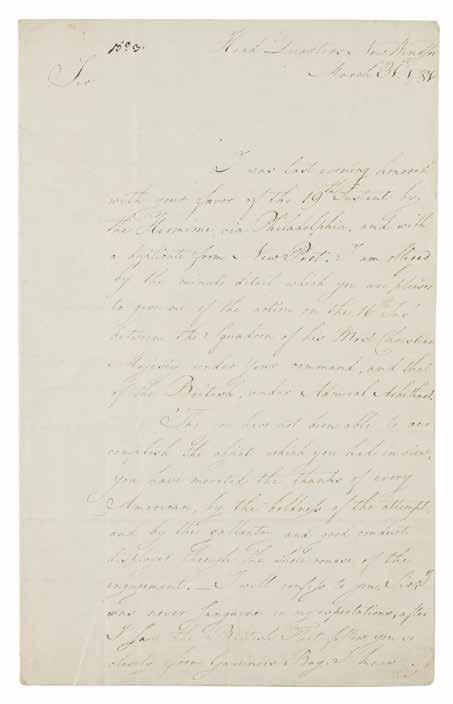 No 3.
Head Quarters New Windsor
March 31st 1781
Sir
I was last evening honored
with your favor of the 19th Instant by
the Hermione, via Philadelphia, and with
a duplicate from New Port. I am obliged
by the minute detail which you are pleased
to give me of the action on the 16th Inst
between the Squadron of his Most Christian
Majesty under your command, and that
of the British, under Admiral Arbuthnot.
Tho' you have not been able to ac
complish the object which you had in view,
you have merited the thanks of every
American, by the boldness of the attempt,
and by the gallantry and good conduct
displayed through the whole course of the
engagement. — I will confess to you, Sir, I
was never sanguine in my expectations, after
I saw the British Fleet follow you so
closely from Gardners Bay. I knew